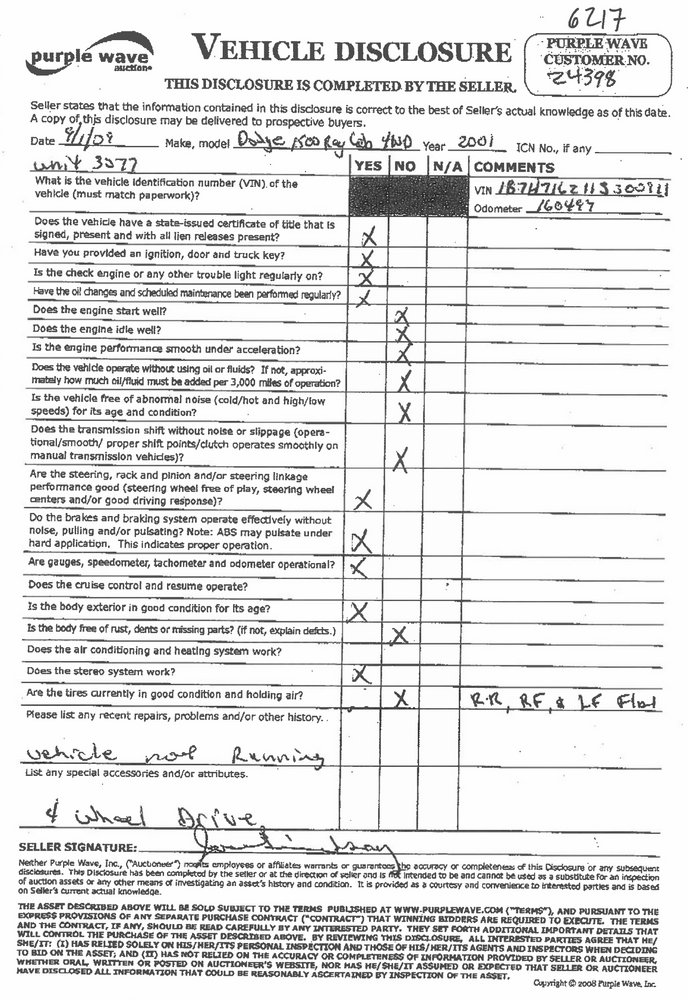 6217
purple wave
auction®
VEHICLE DISCLOSURE
PURPLE WAVE
CUSTOMER NO.
24398
THIS DISCLOSURE IS COMPLETED BY THE SELLER.
Seller states that the information contained in this disclosure is correct to the best of Seller's actual knowledge as of this date.
A copy of this disclosure may be delivered to prospective buyers.
Date 9/1/09 Make, model Dodge 1500 Reg Cab 4WD Year 2001 ICN No., if any
Unit 3077 YES NO N/A COMMENTS
What is the vehicle identification number (VIN) of the
vehicle (must match paperwork)?
VIN
Odometer 160497
Does the vehicle have a state-issued certificate of title that is
signed, present and with all lien releases present? X
Have you provided an ignition, door and truck key? X
Is the check engine or any other trouble light regularly on? X
Have the oil changes and scheduled maintenance been performed regularly? X
Does the engine start well? X
Does the engine idle well? X
Is the engine performance smooth under acceleration? X
Does the vehicle operate without using oil or fluids? If not, approxi-
mately how much oil/fluid must be added per 3,000 miles of operation? X
Is the vehicle free of abnormal noise (cold/hot and high/low
speeds) for its age and condition? X
Does the transmission shift without noise or slippage (opera-
tional/smooth/ proper shift points/clutch operates smoothly on
manual transmission vehicles)? X
Are the steering, rack and pinion and/or steering linkage
performance good (steering wheel free of play, steering wheel
centers and/or good driving response)? X
Do the brakes and braking system operate effectively without
noise, pulling and/or pulsating? Note: ABS may pulsate under
hard application. This indicates proper operation. X
Are gauges, speedometer, tachometer and odometer operational? X
Does the cruise control and resume operate?
Is the body exterior in good condition for its age? X
Is the body free of rust, dents or missing parts? (if not, explain defcts.) X
Does the air conditioning and heating system work?
Does the stereo system work? X
Are the tires currently in good condition and holding air? X R.R, RF, & LF Flat
Please list any recent repairs, problems and/or other history.
vehicle not Running
List any special accessories and/or attributes.
4 wheel Drive
SELLER SIGNATURE:
Neither Purple Wave, Inc., ("Auctioneer") nor its employees or affiliates warrants or guarantees the accuracy or completeness of this Disclosure or any subsequent
disclosures. This Disclosure has been completed by the seller or at the direction of seller and is not intended to be and cannot be used as a substitute for an inspection
of auction assets or any other means of investigating an asset's history and condition. It is provided as a courtesy and convenience to interested parties and is based
on Seller's current actual knowledge.
THE ASSET DESCRIBED ABOVE WILL BE SOLD SUBJECT TO THE TERMS PUBLISHED AT WWW.PURPLEWAVE.COM ("TERMS"), AND PURSUANT TO THE
EXPRESS PROVISIONS OF ANY SEPARATE PURCHASE CONTRACT ("CONTRACT") THAT WINNING BIDDERS ARE REQUIRED TO EXECUTE. THE TERMS
AND THE CONTRACT, IF ANY, SHOULD BE READ CAREFULLY BY ANY INTERESTED PARTY. THEY SET FORTH ADDITIONAL IMPORTANT DETAILS THAT
WILL CONTROL THE PURCHASE OF THE ASSET DESCRIBED ABOVE. BY REVIEWING THIS DISCLOSURE, ALL INTERESTED PARTIES AGREE THAT HE/
SHE/IT: (I) HAS RELIED SOLELY ON HIS/HER/ITS PERSONAL INSPECTION AND THOSE OF HIS/HER/ITS AGENTS AND INSPECTORS WHEN DECIDING
TO BID ON THE ASSET; AND (II) HAS NOT RELIED ON THE ACCURACY OR COMPLETENESS OF INFORMATION PROVIDED BY SELLER OR AUCTIONEER,
WHETHER ORAL, WRITTEN OR POSTED ON AUCTIONEER'S WEBSITE, NOR HAS HE/SHE/IT ASSUMED OR EXPECTED THAT SELLER OR AUCTIONEER
HAVE DISCLOSED ALL INFORMATION THAT COULD BE REASONABLY ASCERTAINED BY INSPECTION OF THE ASSET.
Copyright © 2008 Purple Wave, Inc.